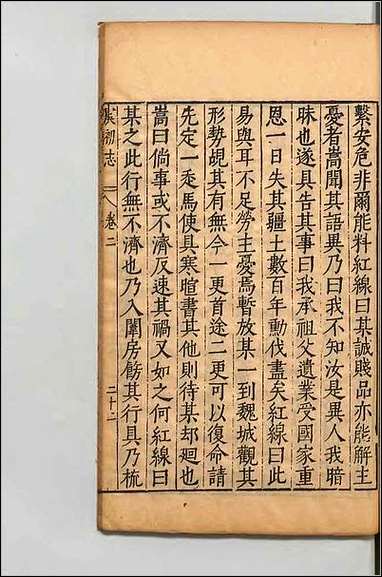 繫安危非爾能料紅線曰某誠賤品亦能解主
憂者嵩聞其語異乃曰我不知汝是異人我暗
昧也遂具告其事曰我承祖父遺業受國家重
恩一日失其疆土數百年勳伐盡矣紅線曰此
易與耳不足勞主憂焉暫放某一到魏城觀其
形勢覘其有無今一更首途二更可以復命請
先定一乘馬使具寒暄書其他則待某却迴也
嵩曰倘事或不濟反速其禍又如之何紅線曰
某之此行無不濟也乃入闈房飭其行具乃梳
虞初志 卷二 二十二